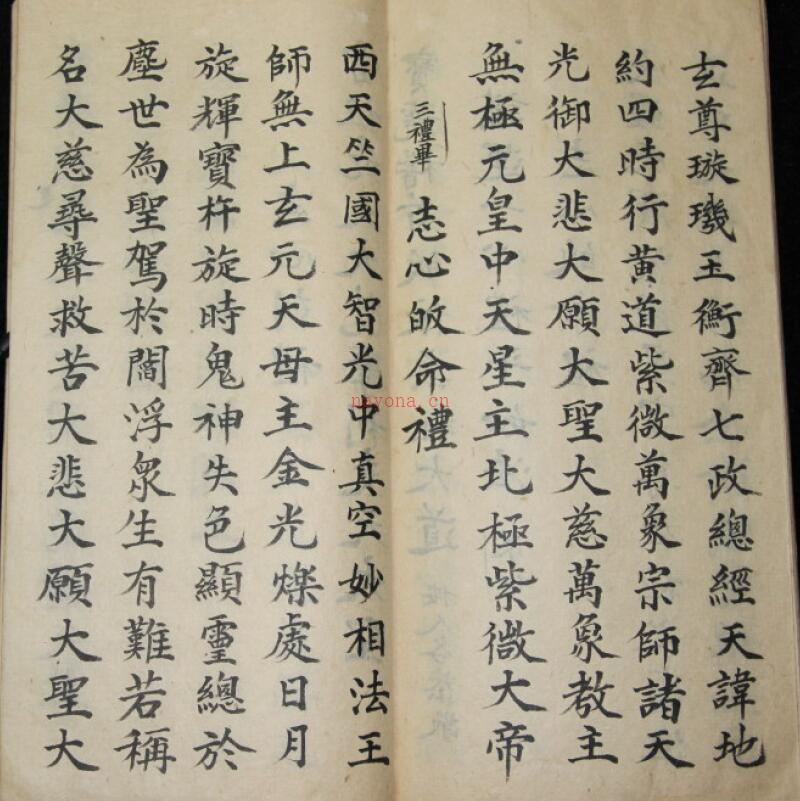 玄尊璇璣玉衡齊七政總經天諱地
約四時行黄道紫微萬象宗師諸天
光御大悲大願大聖大慈萬象教主
無極元皇中天星主北極紫微大帝
三禮畢 志心皈命禮
西天竺國大智光中真空妙相法王
師無上玄元天母主金光爍處日月
旋輝寶杵旋時鬼神失色顯靈總於
塵世為聖駕於閻浮衆生有難若稱
名大慈尋聲救苦大悲大願大聖大
nayona.cn